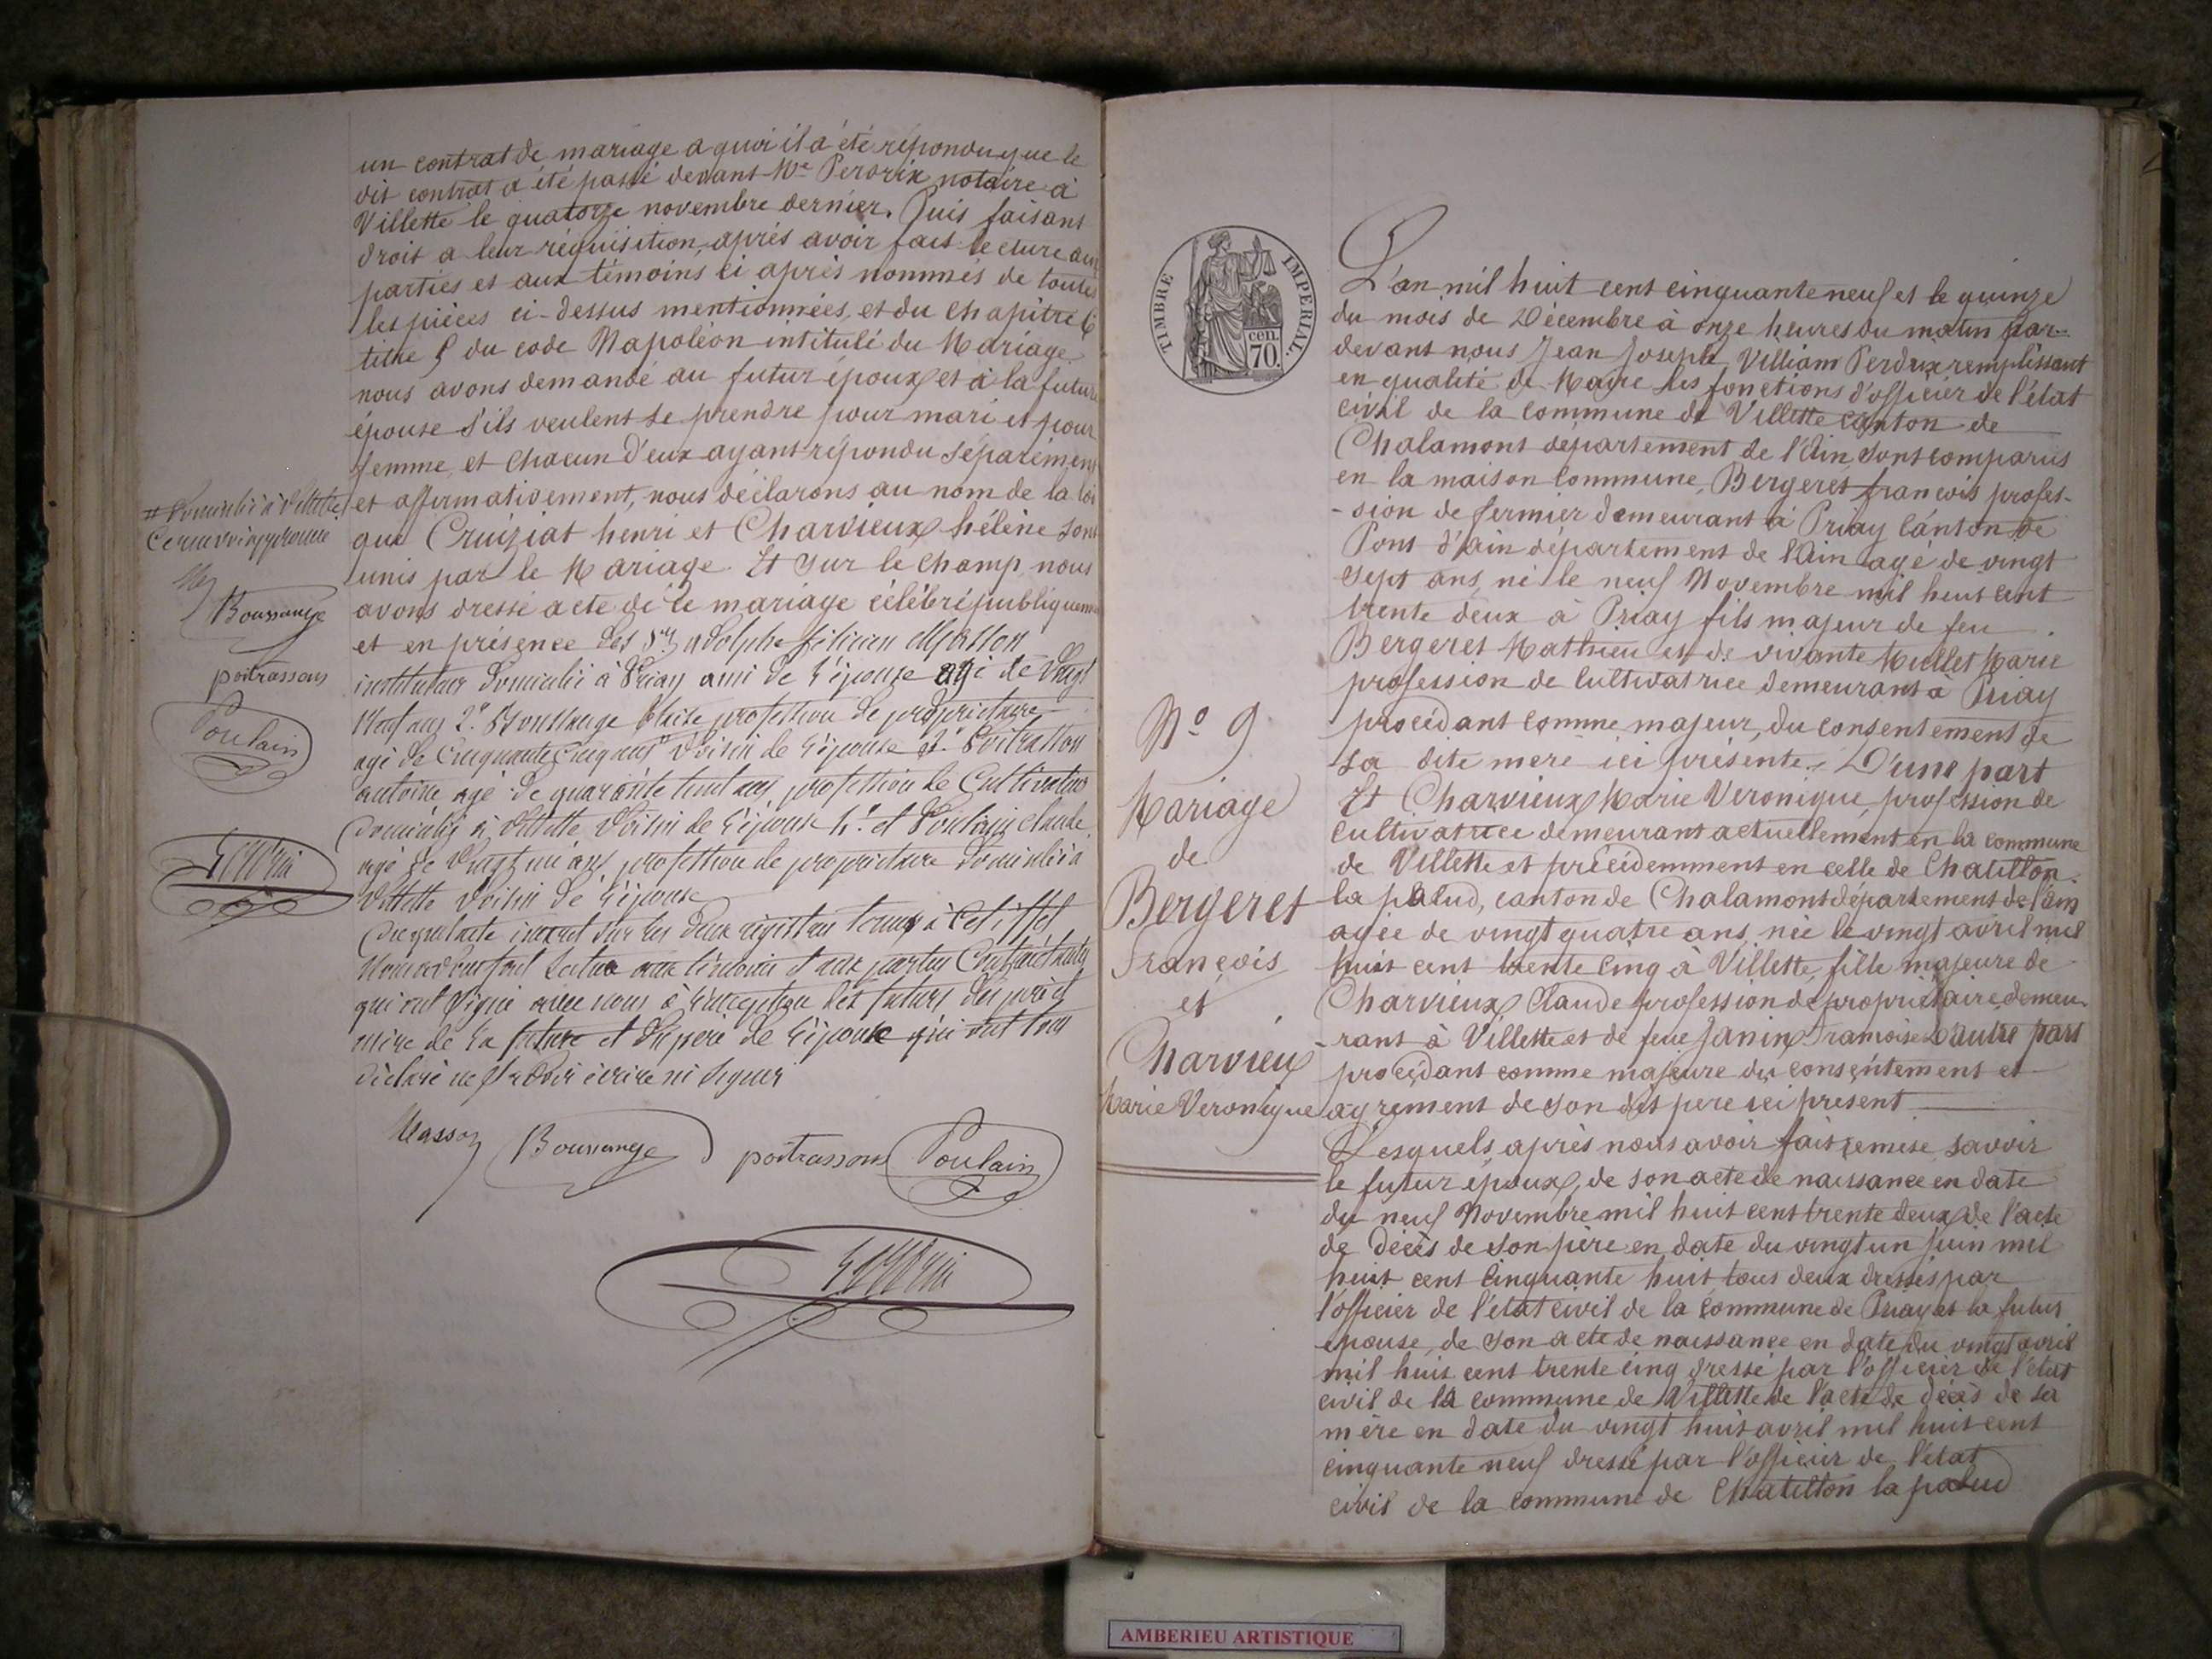 un contrat de mariage a quoi il a été répondu que le
dit contrat a été passé devant Me Perdrix notaire à
Villette le quatorze novembre dernier. Puis faisant
droit a leur réquisition, après avoir fait lecture aux
parties et aux témoins ci après nommés de toutes
les pièces ci-dessus mentionnées, et du chapitre 6
titre 5 du code Napoléon intitulé du Mariage
nous avons demandé au futur époux et à la future
épouse s'ils veulent se prendre pour mari et pour
femme, et chacun d'eux ayant répondu séparément
et affirmativement, nous déclarons au nom de la loi
que Cruiziat henri et Charvieux hélène sont
unis par le Mariage. Et sur le champ nous
avons dressé acte de ce mariage célébré publiquement
et en présence des Srs adolphe félicien Masson
instituteur domicilié à Priay ami de l'épouse agé de vingt
neuf ans 2° Boussange Claite profession de propriétaire
agé de cinquante cinq ans # voisin de l'épouse 3° Poitrasson
antoine agé de quarante huit ans profession de Cultivateur
domicilié à Villette voisin de l'épouse 4° et Poulain claude
agé de vingt un ans, profession de propriétaire domicilié à
Villette voisin de l'épouse
Duquel acte inscrit sur les deux registres tenus à cet effet
nous avons fait lecture aux témoins et aux parties Contractantes
qui ont signé avec nous à l'exception des futurs des père et
mère de la future et du père de l'épouse qui ont tous
déclaré ne savoir écrire ni signer
Masson Boussange poitrassons Poulain
# domicilié à Villette
Ce renvoi approuvé
Ms
Boussange
poitrassons
Poulain
TIMBRE IMPERIAL.
cen. 70.
L'an mil huit cent cinquante neuf et le quinze
du mois de Décembre à onze heures du matin par-
devant nous Jean Joseph Villiam Perdrix remplissant
en qualité de Maire les fonctions d'officier de l'état
civil de la commune de Villette canton de
Chalamont département de l'Ain sont comparus
en la maison commune, Bergeret françois profes-
-sion de fermier demeurant à Priay Canton de
Pont d'ain département de l'Ain agé de vingt
sept ans, né le neuf Novembre mil huit cent
trente deux à Priay fils majeur de feu
Bergeret Mathieu et de vivante Mullet Marie
profession de Cultivatrice demeurant à Priay
procédant comme majeur, du consentement de
sa dite mere ici présente. D'une part
Et Charvieux Marie Veronique, profession de
cultivatrice demeurant actuellement en la commune
de Villette et précédemment en celle de Chatillon
la palud, canton de Chalamont département de l'ain
agée de vingt quatre ans, née le vingt avril mil
huit cent trente cinq à Villette, fille majeure de
Charvieux Claude profession de propriétaire demeu-
-rant à Villette et de feue Janin Francoise D'autre part
procédant comme majeure du consentement et
agrement de son dit pere ici present
Lesquels après nous avoir fait remise savoir
le futur époux, de son acte de naissance en date
du neuf Novembre mil huit cent trente deux, de l'acte
de décès de son père en date du vingt un juin mil
huit cent cinquante huit tous deux dressés par
l'officier de l'état civil de la commune de Priay et la futur
épouse, de son acte de naissance en date du vingt avril
mil huit cent trente cinq dressé par l'officier de l'état
civil de la commune de Villette de l'acte de décès de sa
mère en date du vingt huit avril mil huit cent
cinquante neuf dressé par l'officier de l'état
civil de la commune de Chatillon la palud
N° 9
Mariage
de
Bergeret
François
et
Charvieux
Marie Veronique
AMBERIEU ARTISTIQUE